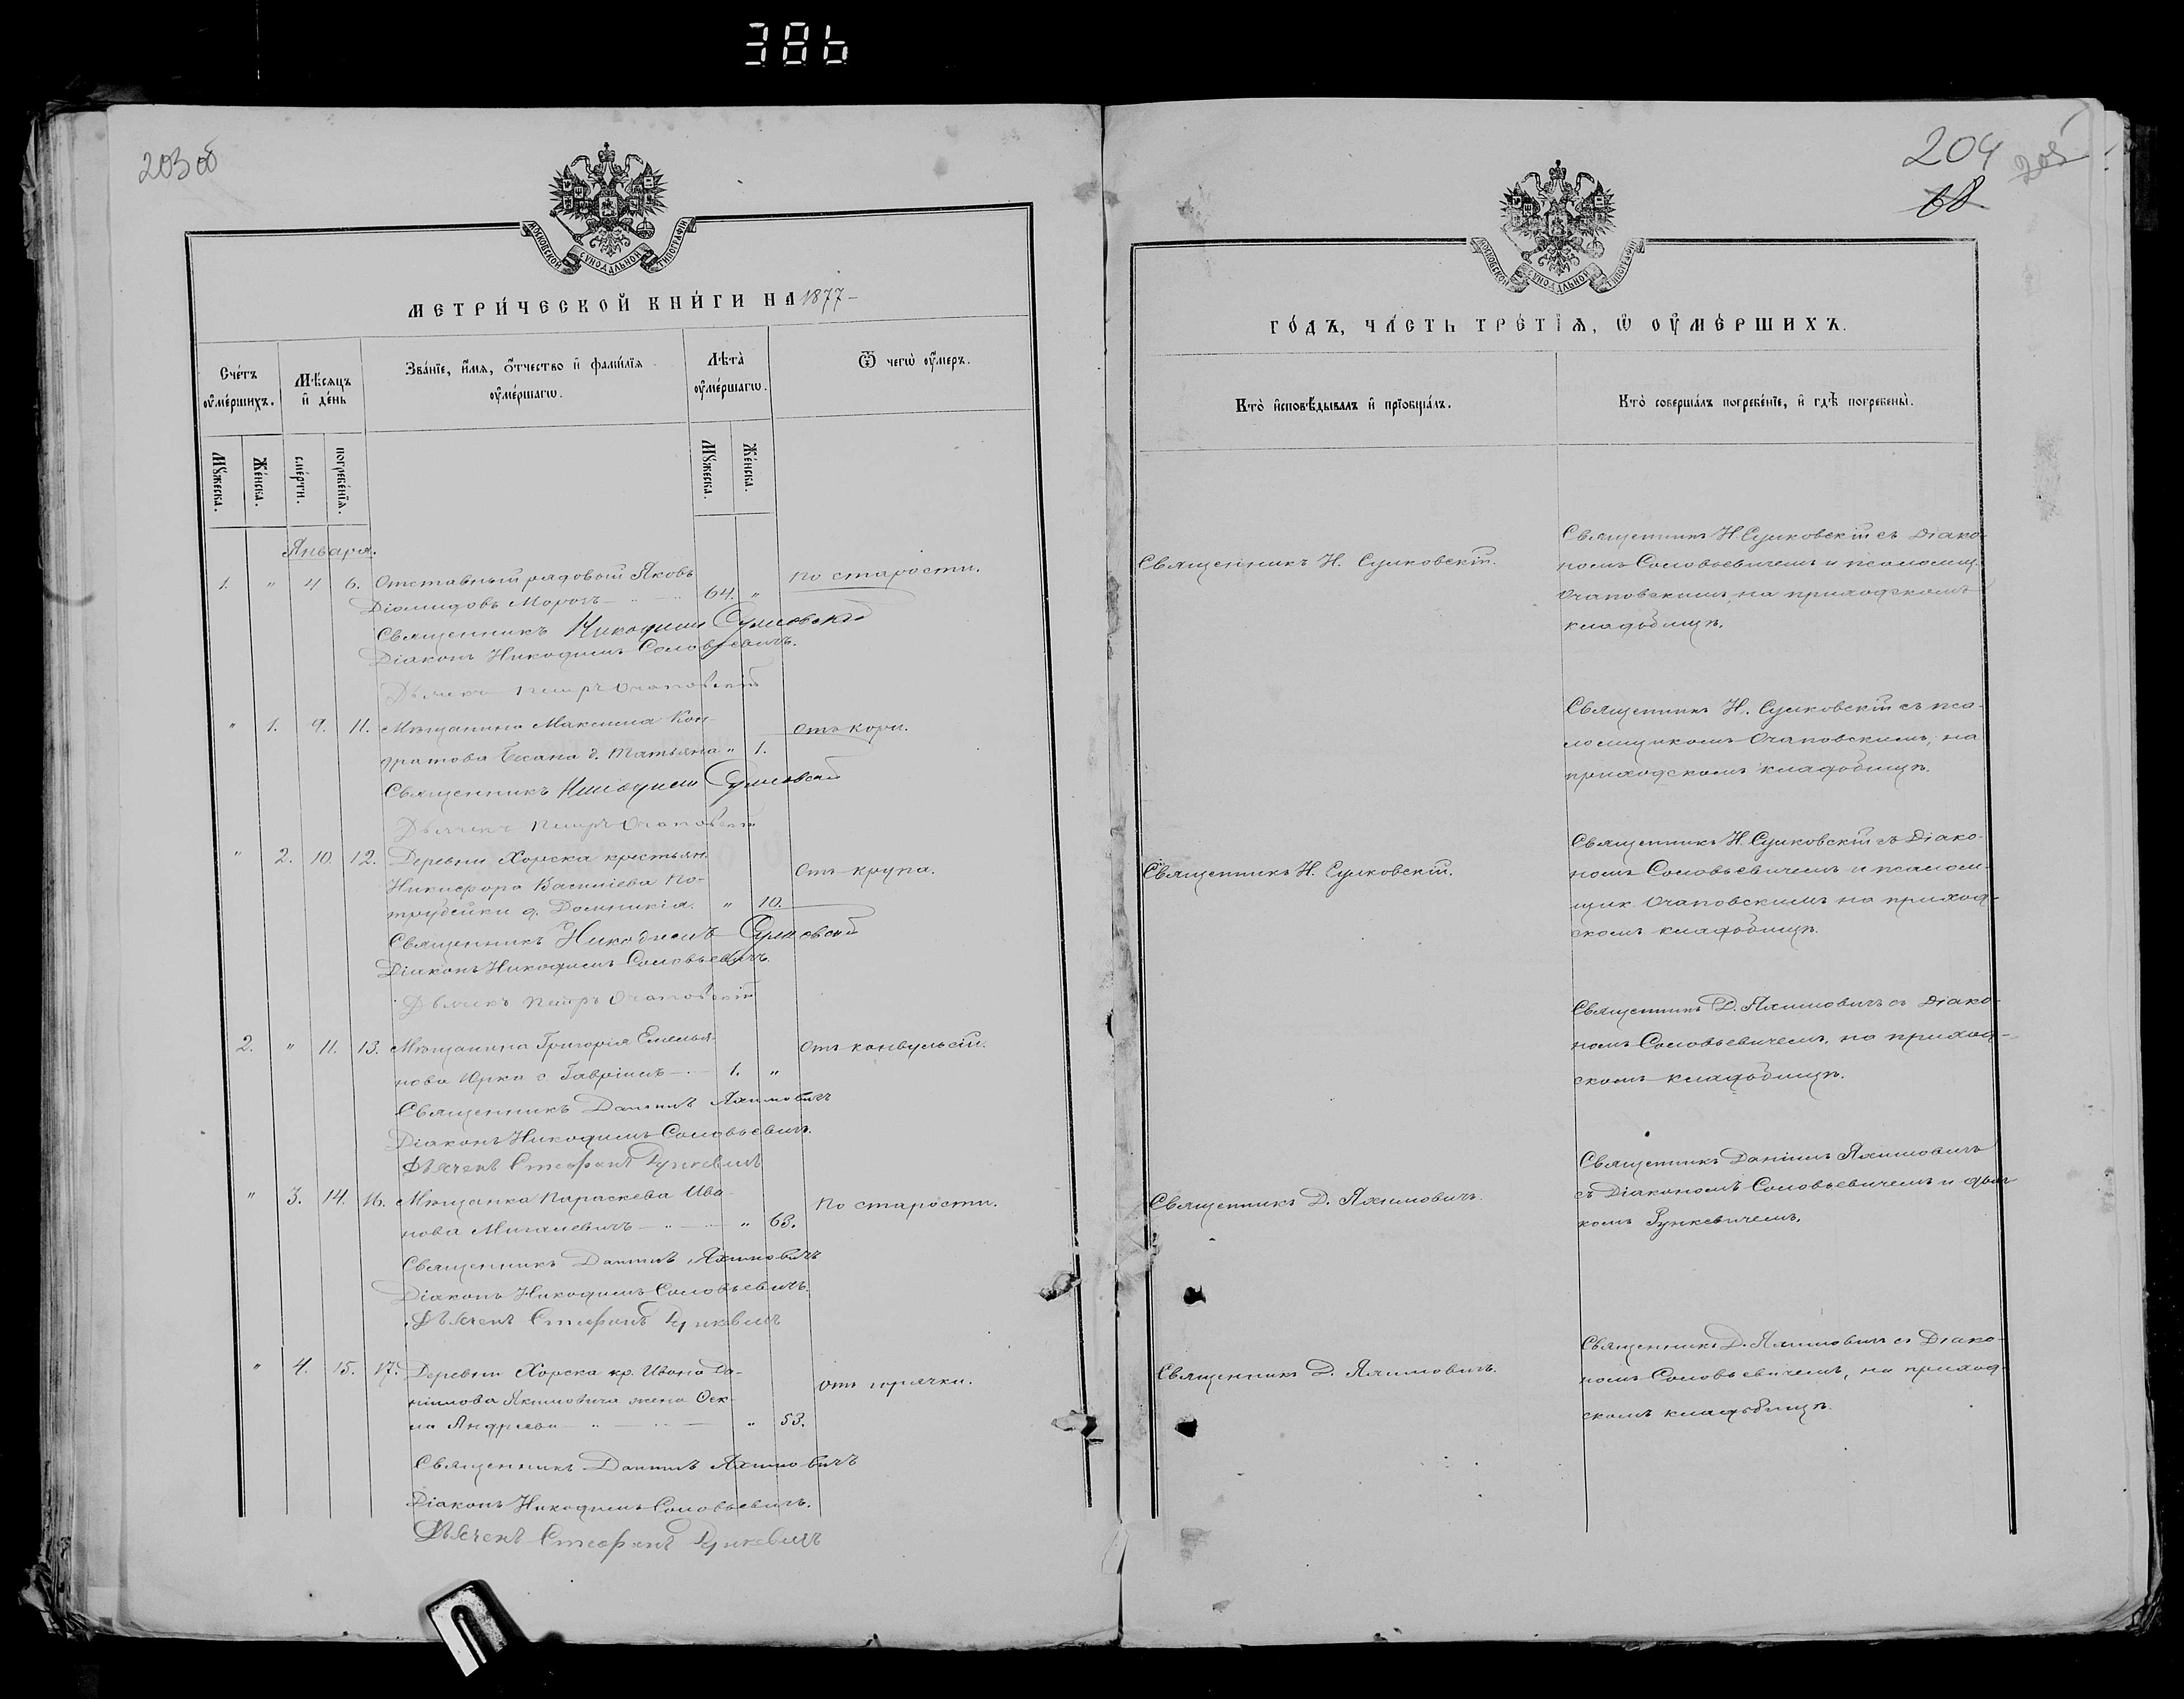 386
203 об
МОСКОВСКОЙ СѴНОДАЛЬНОЙ ТИПОГРАФІИ
МЕТРИ́ЧЕСКОЙ КНИ́ГИ НА 1877
Сче́тъ оу҆ме́ршихъ.
Мѣ́сяцъ и҆ де́нь
Зва́нїе, и҆́мя, ѻ҆́тчество и҆ фами́лїя оу҆ме́ршагѡ.
Лѣ́та оу҆ме́ршагѡ.
Ѿ чегѡ̀ оу҆́меръ.
Мꙋ́жеска.
Же́нска.
сме́рти.
погребе́нїя.
Мꙋ́жеска.
Же́нска.
Января.
1. " 4 6. Отставный рядовый Яковъ
Діомидовъ Морозъ 64. "
По старости.
Священникъ Никодимъ Сулковскій
Діаконъ Никодимъ Соловьевичъ.
Дьячекъ Петръ Очаповскій
" 1. 9. 11. Мѣщанина Максима Кон-
дратова д. Татьяна " 1.
Отъ кори.
Священникъ Никодимъ Сулковскій
Дьячекъ Петръ Очаповскій
" 2. 10. 12. Деревни Хорска крестьян.
Никифора Василіева По-
трубейки д. Домникія. " 10.
Отъ крупа.
Священникъ Никодимъ Сулковскій
Діаконъ Никодимъ Соловьевичъ.
Дьячекъ Петръ Очаповскій
2. " 11. 13. Мѣщанина Григорія Емелья-
нова Юрка с. Гавріилъ 1. "
Отъ конвульсій.
Священникъ Даніилъ Яхимовичъ
Діаконъ Никодимъ Соловьевичъ.
Дьячекъ Стефанъ Рункевичъ
" 3. 14. 16. Мѣщанка Параскева Ива-
нова " 63.
По старости.
Священникъ Даніилъ Яхимовичъ
Діаконъ Никодимъ Соловьевичъ.
Дьячекъ Стефанъ Рункевичъ
" 4. 15. 17. Деревни Хорска кр. Ивана Да-
ніилова Якимовича жена Фек-
ла Андреева " 53.
Отъ горячки.
Священникъ Даніилъ Яхимовичъ
Діаконъ Никодимъ Соловьевичъ.
Дьячекъ Стефанъ Рункевичъ
204
205
68
МОСКОВСКОЙ СѴНОДАЛЬНОЙ ТИПОГРАФІИ
ГО́ДЪ, ЧА́СТЬ ТРЕ́ТЇЯ, Ѡ҆ ОУ҆МЕ́РШИХЪ.
Кто̀ и҆сповѣ́дывалъ и҆ прїѡбща́лъ.
Кто̀ соверша́лъ погребе́нїе, и҆ гдѣ̀ погребены̀.
Священникъ Н. Сулковскій.
Священникъ Н. Сулковскій съ Діако-
номъ Соловьевичемъ и псаломщ.
Очаповскимъ, на приходскомъ
кладбищѣ.
Священникъ Н. Сулковскій съ пса-
ломщикомъ Очаповскимъ, на
приходскомъ кладбищѣ.
Священникъ Н. Сулковскій.
Священникъ Н. Сулковскій съ Діако-
номъ Соловьевичемъ и псалом-
щик. Очаповскимъ на приход-
скомъ кладбищѣ.
Священникъ Д. Яхимовичъ съ Діако-
номъ Соловьевичемъ, на приход-
скомъ кладбищѣ.
Священникъ Д. Яхимовичъ.
Священникъ Даніилъ Яхимовичъ
съ Діакономъ Соловьевичемъ и дьяч-
комъ Рункевичемъ.
Священникъ Д. Яхимовичъ.
Священникъ Д. Яхимовичъ съ Діако-
номъ Соловьевичемъ, на приход-
скомъ кладбищѣ.